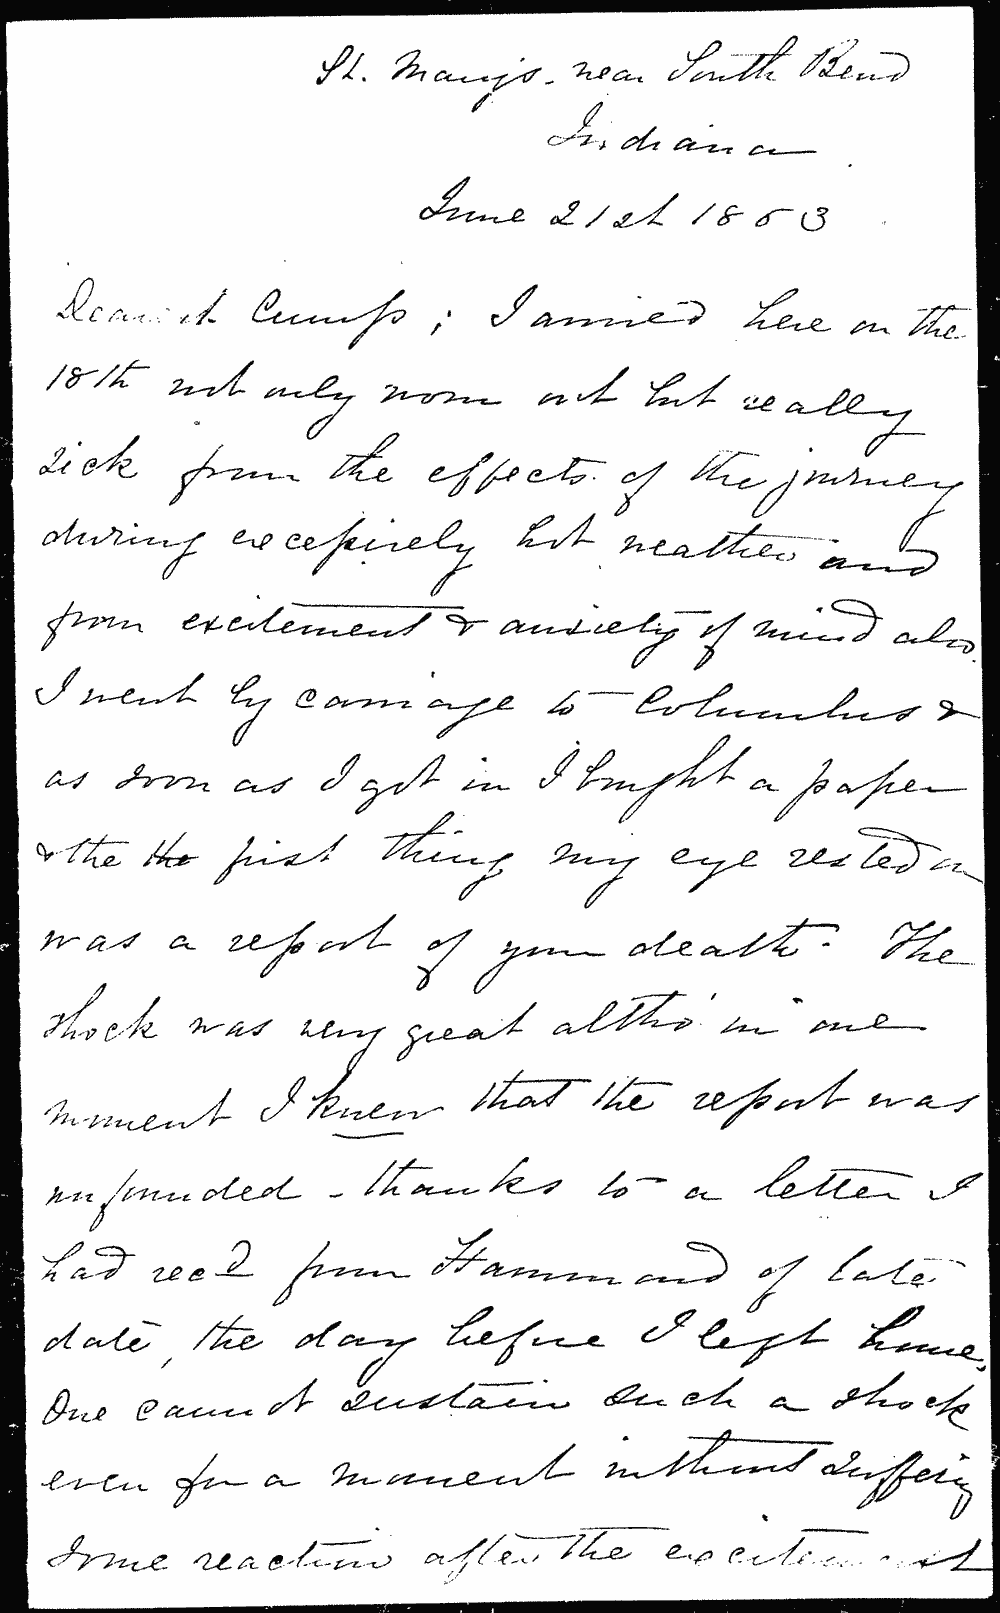 St. Mary's - near South Bend
Indiana
June 21st 1863
Dearest Cump; I arrived here on the
18th not only worn out but really
sick from the effects of the journey
during excessively hot weather and
from excitement & anxiety of mind also.
I went by carriage to Columbus &
as soon as I got in I bought a paper
& the the first thing my eye rested on
was a report of your death. The
shock was very great altho' in one
moment I knew that the report was
unfounded - thanks to a letter I
had recd from Hammond of late
date, the day before I left home.
One cannot sustain such a shock
even for a moment without suffering
some reaction after the excitement